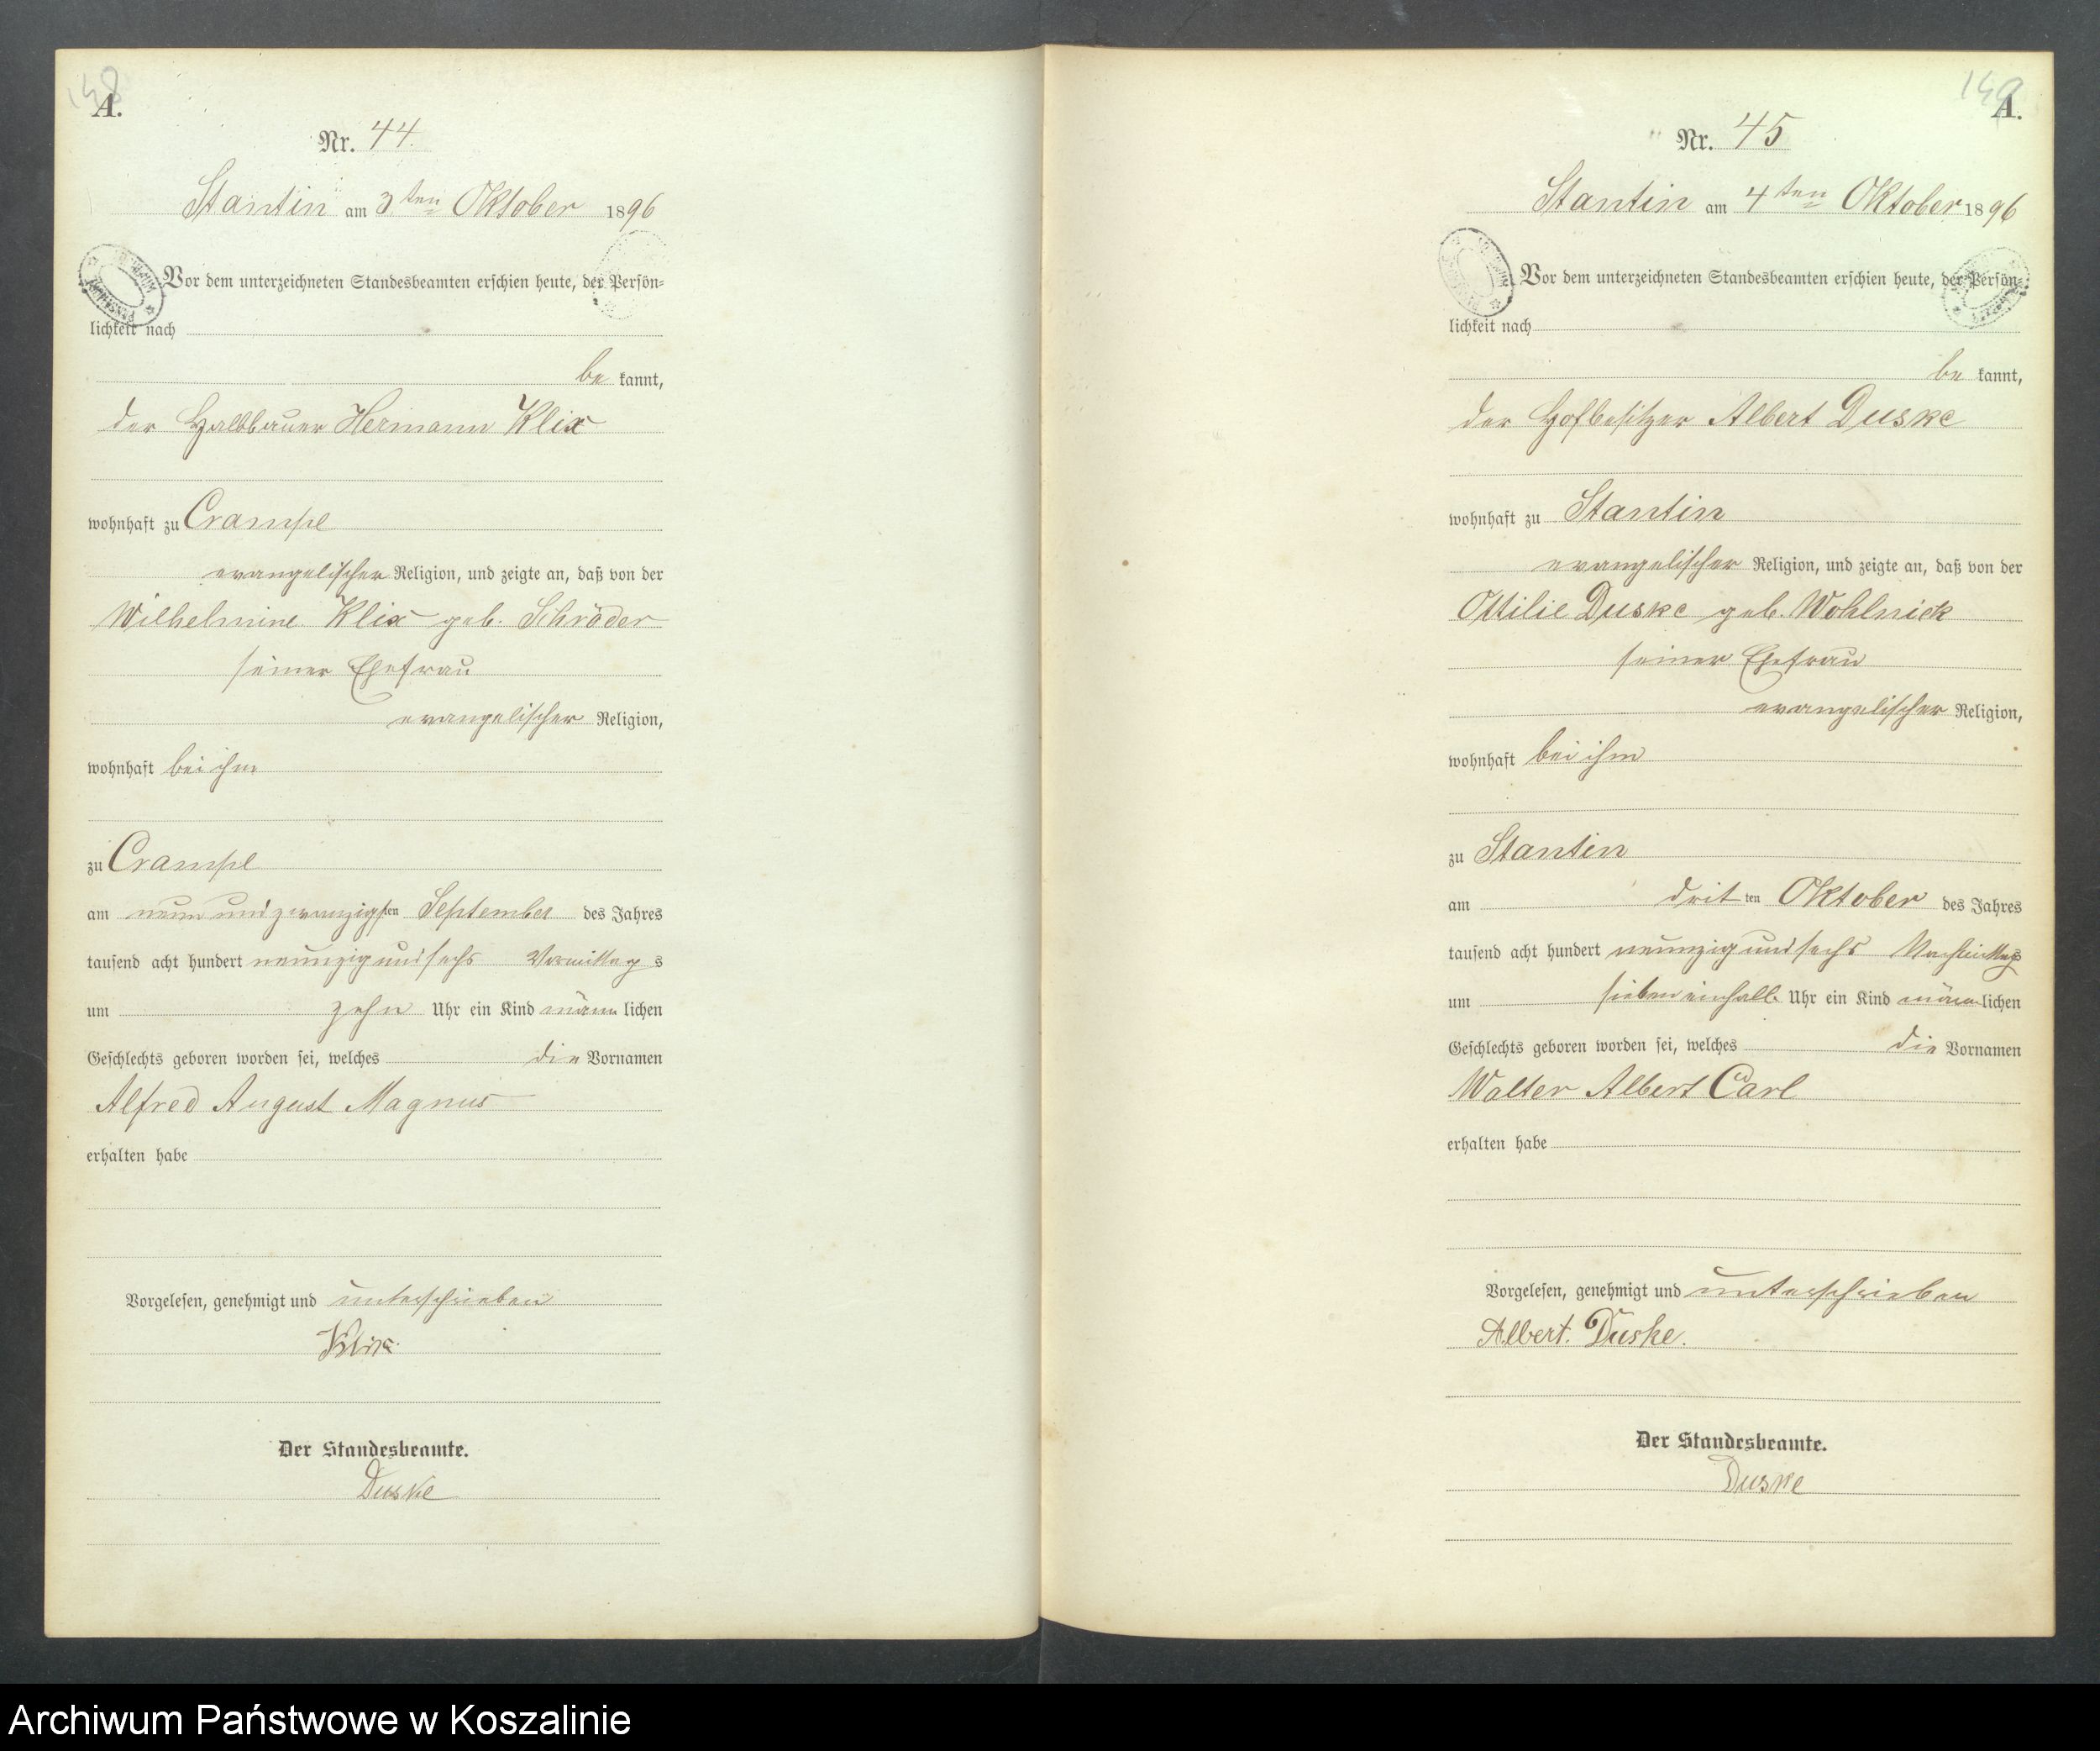 148
A.
Nr. 44.
Stantin am 3ten Oktober 1896
Vor dem unterzeichneten Standesbeamten erschien heute, der Persön=
lichkeit nach
be kannt,
der Halbbauer Hermann Klix
wohnhaft zu Crampe
evangelischer Religion, und zeigte an, daß von der
Wilhelmine Klix geb. Schröder
seiner Ehefrau
evangelischer Religion,
wohnhaft bei ihm
zu Crampe
am neun und zwanzigsten September des Jahres
tausend acht hundert neunzig und sechs Vormittag s
um zehn Uhr ein Kind männ lichen
Geschlechts geboren worden sei, welches die Vornamen
Alfred August Magnus
erhalten habe
Vorgelesen, genehmigt und unterschrieben
Klix.
Der Standesbeamte.
Duske
149
A.
Nr. 45
Stantin am 4ten Oktober 1896
Vor dem unterzeichneten Standesbeamten erschien heute, der Persön=
lichkeit nach
be kannt,
der Hofbesitzer Albert Duske
wohnhaft zu Stantin
evangelischer Religion, und zeigte an, daß von der
Ottilie Duske geb. Wohlnick
seiner Ehefrau
evangelischer Religion,
wohnhaft bei ihm
zu Stantin
am drit ten Oktober des Jahres
tausend acht hundert neunzig und sechs Nachmittags
um sieben einhalb Uhr ein Kind männ lichen
Geschlechts geboren worden sei, welches die Vornamen
Walter Albert Carl
erhalten habe
Vorgelesen, genehmigt und unterschrieben
Albert. Duske.
Der Standesbeamte.
Duske
Archiwum Państwowe w Koszalinie